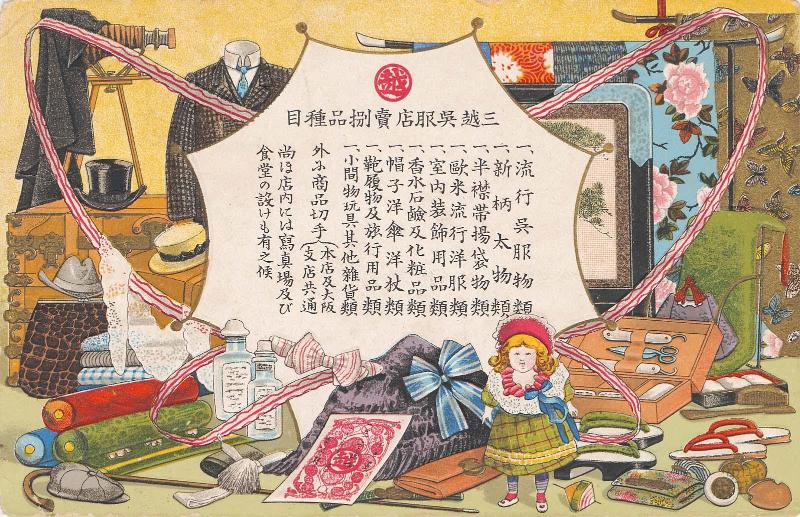 越
三越呉服店賣捌品種目
一、流行呉服物類
一、新柄太物類
一、半襟帯揚袋物類
一、歐米流行洋服類
一、室内装飾用品類
一、香水石鹼及化粧品類
一、帽子洋傘洋杖類
一、靴履物及旅行用品類
一、小間物玩具其他雜貨類
外ニ商品切手(本店及大阪支店共通)
尚ほ店内には寫真場及び
食堂の設けも有之候
越